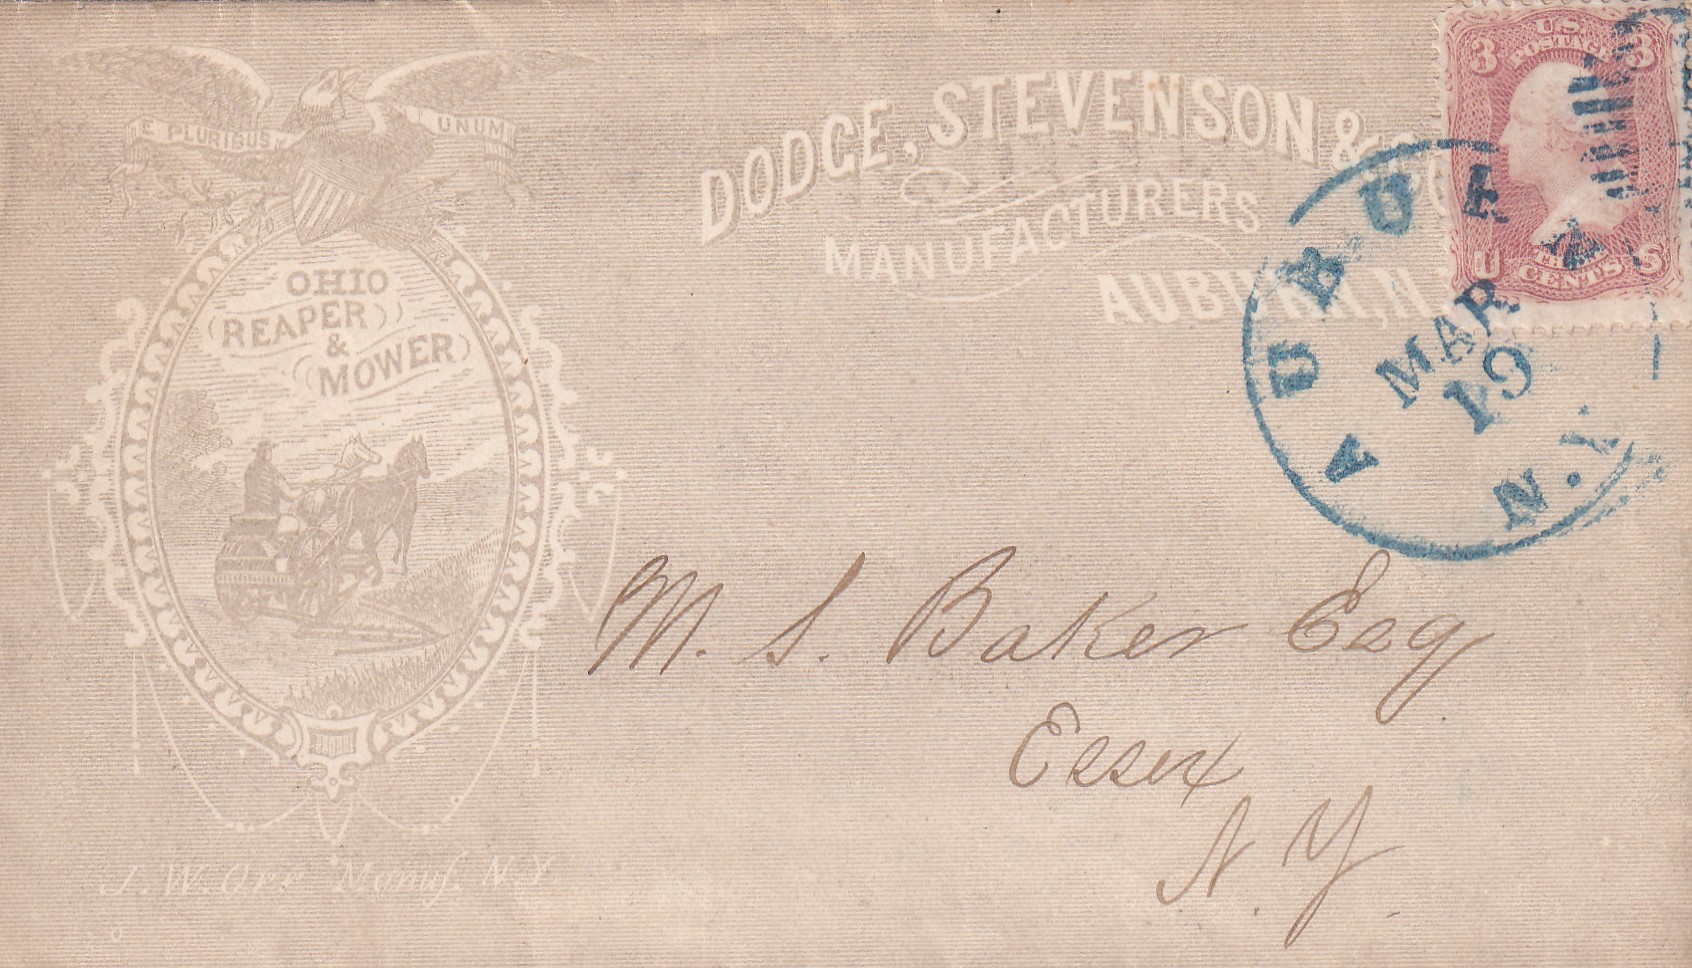 E PLURIBUS UNUM
OHIO
REAPER
&
MOWER
J. W. Orr Manuf. N.Y.
DODGE, STEVENSON &
MANUFACTURERS
AUBURN, N.
U.S. POSTAGE
3 3
THREE
U CENTS S
AUBURN N.Y.
MAR
19
M. S. Baker Esq
Essex
N. Y.